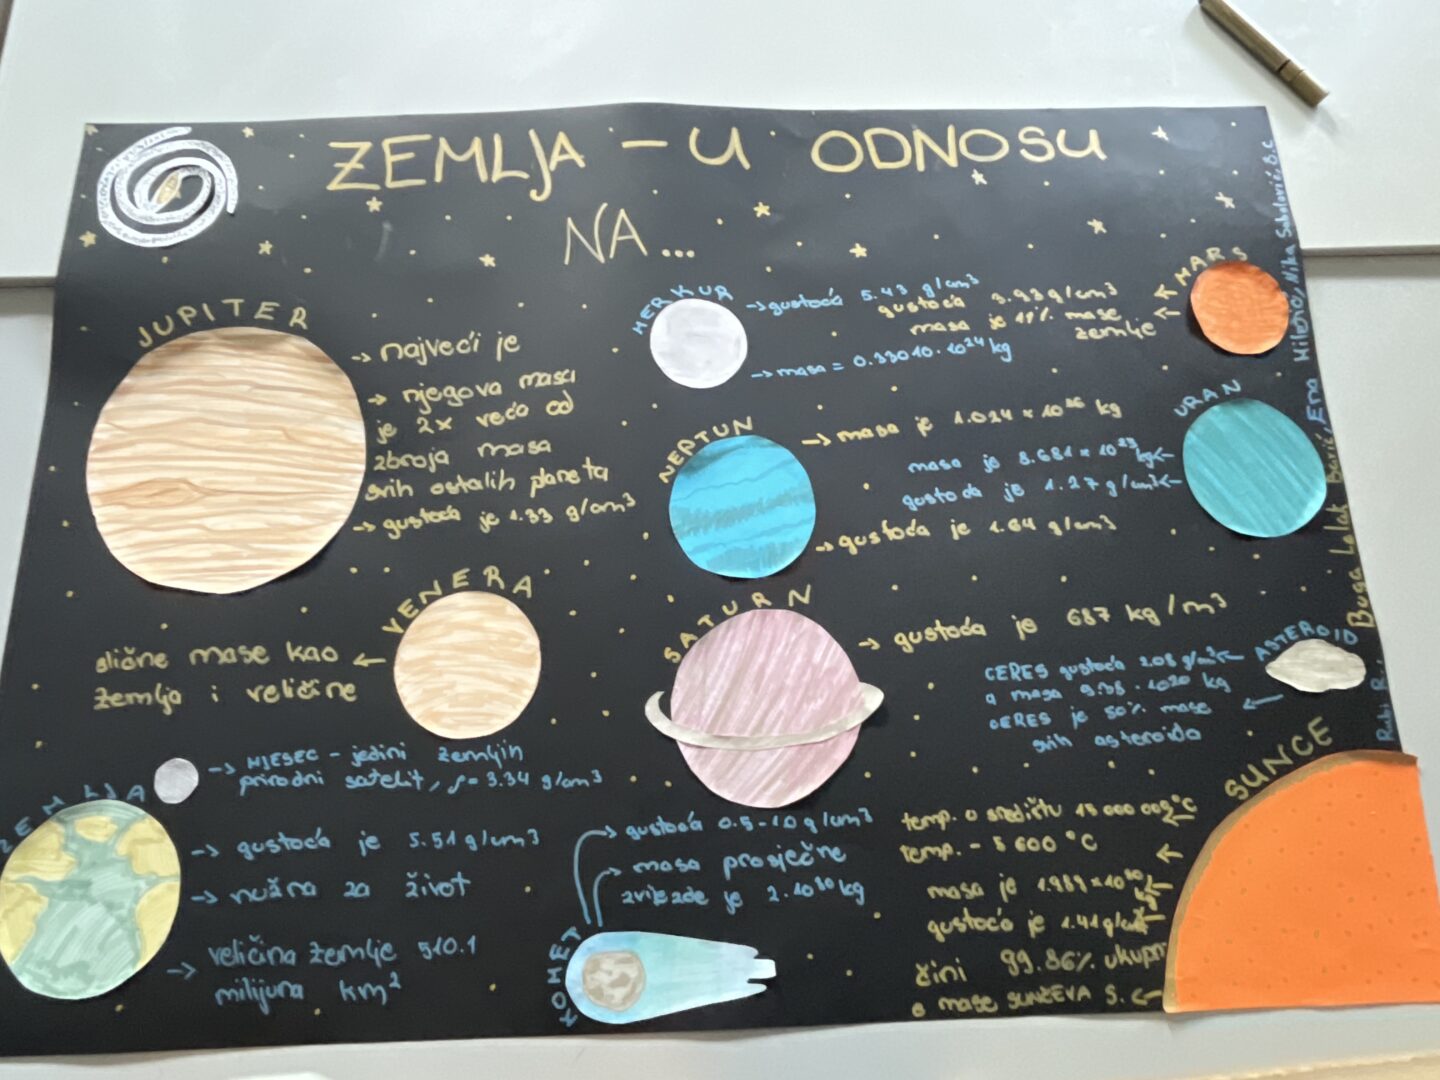 ZEMLJA - U ODNOSU
NA...
JUPITER
→ najveći je
→ njegova masa
je 2x veća od
zbroja masa
svih ostalih planeta
→ gustoća je 1.33 g/cm³
MERKUR
→ gustoća 5.43 g/cm³
→ masa = 0.33010·10²⁴ kg
MARS
gustoća 3.93 g/cm³
masa je 11% mase
zemlje
NEPTUN
→ masa je 1.024 × 10²⁶ kg
→ gustoća je 1.64 g/cm³
URAN
masa je 8.681 × 10²⁵ kg
gustoća je 1.27 g/cm³
VENERA
slične mase kao
Zemlja i veličine
SATURN
→ gustoća je 687 kg/m³
ASTEROID
CERES gustoća 2.08 g/cm³
a masa 9.38·10²⁰ kg
CERES je 30% mase
svih asteroida
→ MJESEC - jedini zemljin
prirodni satelit, ρ = 3.34 g/cm³
ZEMLJA
→ gustoća je 5.51 g/cm³
→ nužna za život
→ veličina zemlje 510.1
milijuna km²
KOMET
→ gustoća 0.5-1.0 g/cm³
→ masa prosječne
zvijezde je 2·10³⁰ kg
SUNCE
temp. u središtu 15 000 000 °C
temp. - 5 600 °C
masa je 1.989 × 10³⁰
gustoća je 1.41 g/cm³
čini 99.86% ukupn
e mase SUNČEVA S.
Rubi R., Buga Barić, Ena Nika 8.c